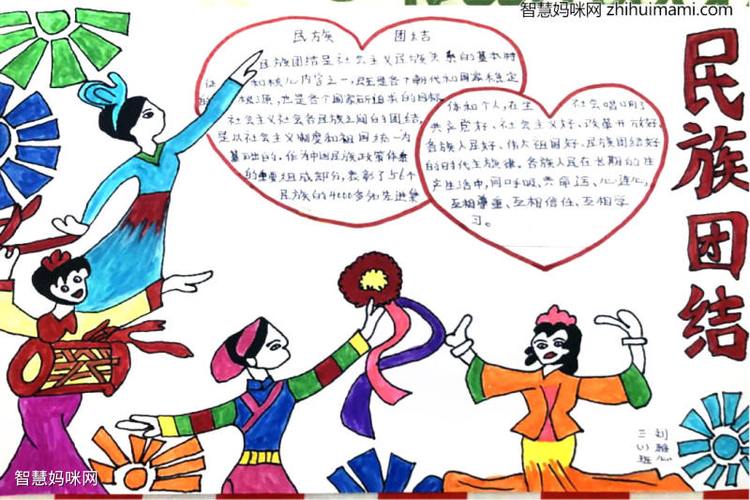 智慧妈咪网 zhihuimami.com
民族 团结
民族团结是社会主义民族关系的基本特
征和核心内容之一,既是各个朝代和国家稳定
的根源,也是各个国家所追求的目标。
社会主义社会各民族之间的团结,
是以社会主义制度和祖国统一为
基础的。作为中国民族政策体系
的重要组成部分,表彰了56个
民族的4000多个先进集
体和个人,在全社会唱响了
共产党好、社会主义好、改革开放好、
各族人民好、伟大祖国好、民族团结好
的时代主旋律。各族人民在长期的生
产生活中,同呼吸、共命运、心连心,
互相尊重、互相信任、互相学
习。
民族团结
三(1)班
刘
智慧妈咪网